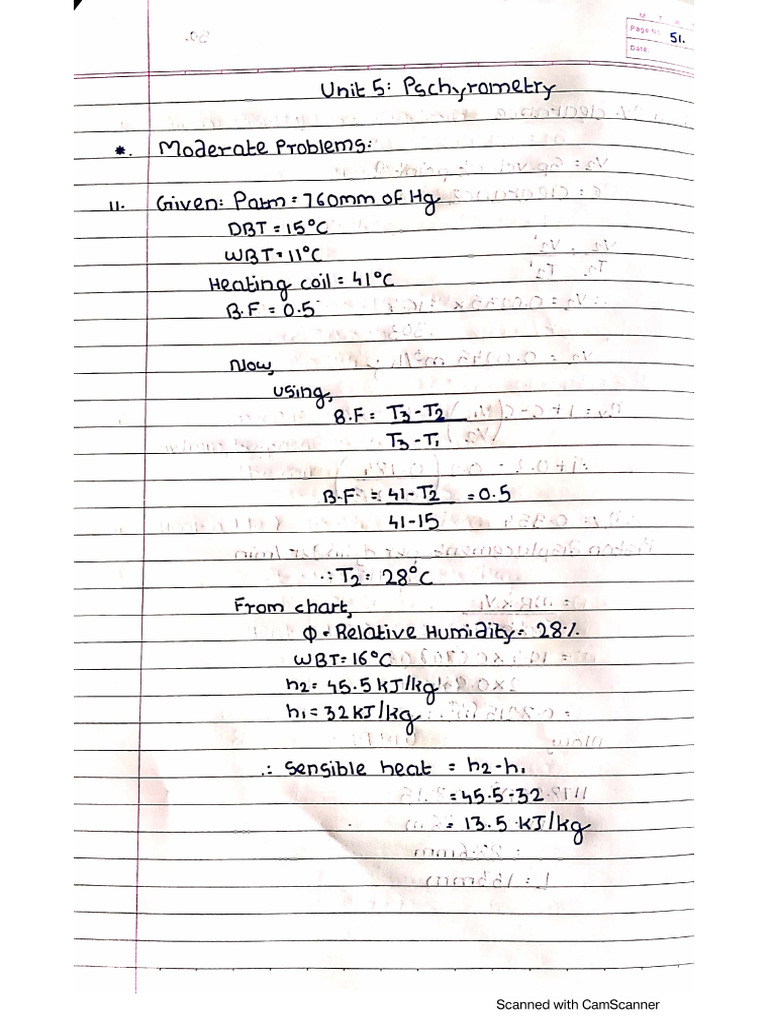 Page No. 51.
Date:
Unit 5: Pschyrometry
*. Moderate Problems:
11. Given: Patm = 760mm of Hg
DBT = 15°C
WBT = 11°C
Heating coil = 41°C
B.F = 0.5
Now,
using,
B.F = T3 - T2
T3 - T1
B.F = 41 - T2 = 0.5
41 - 15
∴ T2 = 28°C
From chart,
Φ = Relative Humidity = 28%
WBT = 16°C
h2 = 45.5 kJ/kg
h1 = 32 kJ/kg
∴ Sensible heat = h2 - h1
= 45.5 - 32
= 13.5 kJ/kg
Scanned with CamScanner